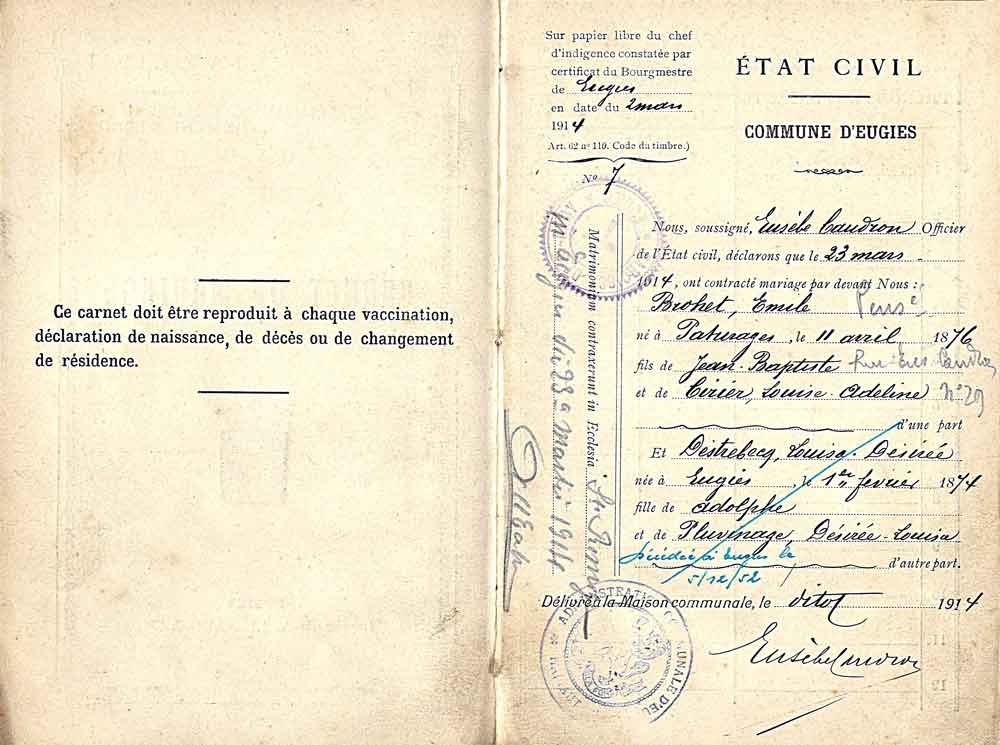 Ce carnet doit être reproduit à chaque vaccination,
déclaration de naissance, de décès ou de changement
de résidence.
Sur papier libre du chef
d'indigence constatée par
certificat du Bourgmestre
de Eugies
en date du 2 mars
1914
Art. 62 nº 119. Code du timbre.)
Nº 7
ÉTAT CIVIL
COMMUNE D'EUGIES
Matrimonium contraxerunt in Ecclesia St Remy
die 23 a Martii 1914
Nous, soussigné, Eusèbe Caudron Officier
de l'État civil, déclarons que le 23 mars
1914, ont contracté mariage par devant Nous :
Brohet, Emile
né à Paturages, le 11 avril 1876
fils de Jean-Baptiste
et de Cirier, Louise-Adeline nº 29
d'une part
Et Destrebecq, Louisa-Désirée
née à Eugies, le 1er fevrier 1874
fille de Adolphe
et de Pluvinage, Désirée-Louisa
décédée à Eugies le
5/12/52
d'autre part.
Délivré à la Maison communale, le ditot 1914
ADMINISTRATION COMMUNALE D'EU